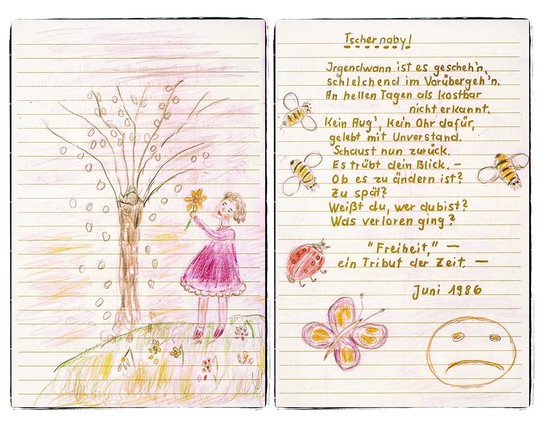 Tschernobyl
Irgendwann ist es gescheh'n,
schleichend im Vorübergeh'n.
An hellen Tagen als kostbar
nicht erkannt.
Kein Aug', kein Ohr dafür,
gelebt mit Unverstand.
Schaust nun zurück.
Es trübt dein Blick. –
Ob es zu ändern ist?
Zu spät?
Weißt du, wer du bist?
Was verloren ging?
"Freiheit," –
ein Tribut der Zeit. –
Juni 1986